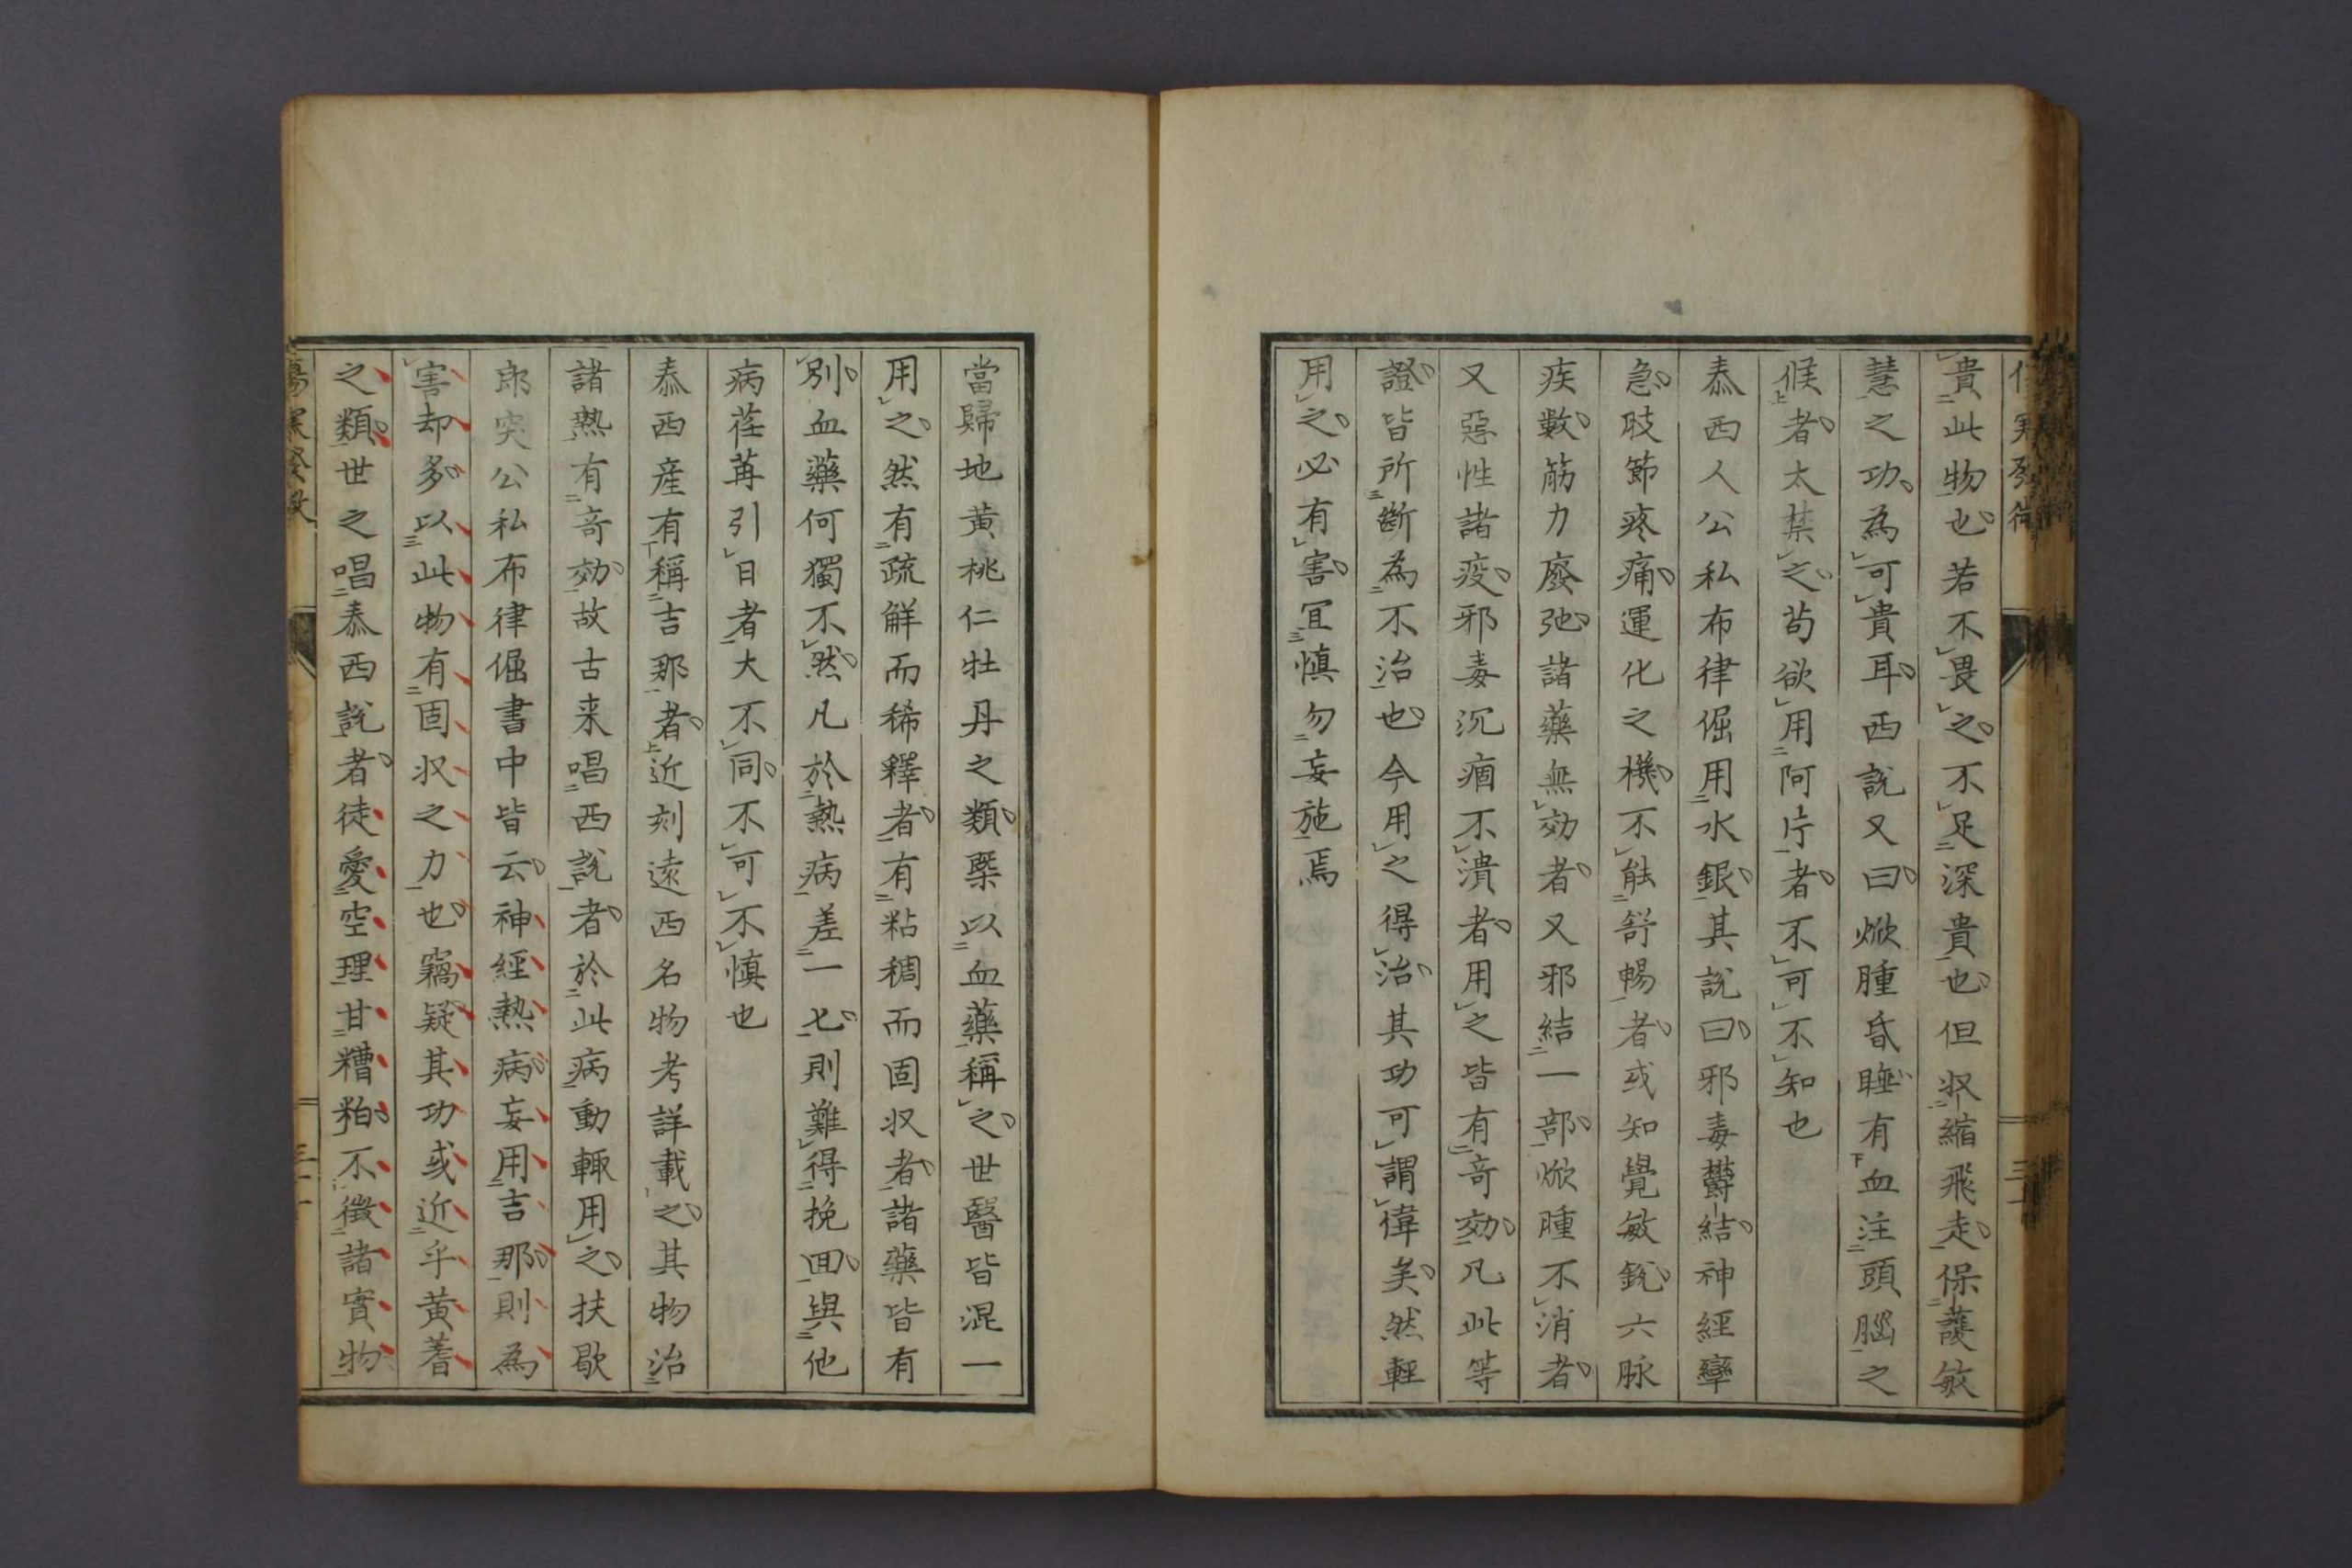 貴此物也若不畏之不足深貴也但収縮飛走保護敏
慧之功為可貴耳西説又曰焮腫昏睡有血注頭腦之
候者太禁之苟欲用阿片者不可不知也
泰西人公私布律倔用水銀其説曰邪毒欝結神經攣
急肢節疼痛運化之機不能舒暢者或知覺敏鋭六脉
疾數筋力廢弛諸藥無効者又邪結一部焮腫不消者
又惡性諸疫邪毒沉痼不潰者用之皆有奇効凡此等
證皆所斷為不治也今用之得治其功可謂偉矣然輕
用之必有害冝慎勿妄施焉
當歸地黄桃仁牡丹之類槩以血藥稱之世醫皆混一
用之然有疏解而稀釋者有粘稠而固収者諸藥皆有
別血藥何獨不然凡於熱病差一匕則難得挽回與他
病荏苒引日者大不同不可不慎也
泰西産有稱吉那者近刻遠西名物考詳載之其物治
諸熱有奇効故古来唱西説者於此病動輙用之扶歇
郎突公私布律倔書中皆云神經熱病妄用吉那則為
害却多以此物有固収之力也竊疑其功或近乎黄耆
之類世之唱泰西説者徒愛空理甘糟粕不徴諸實物
傷寒發微
三十一